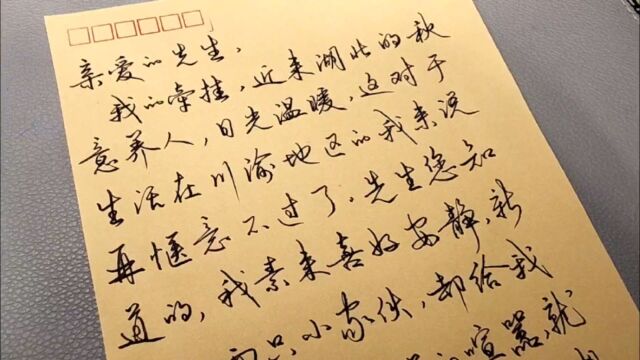 亲爱的先生，
我的牵挂，近来湖北的秋
意养人，日光温暖，这对于
生活在川渝地区的我来说
再惬意不过了。先生您知
道的，我素来喜好安静，新
只小家伙，却给我
喧嚣，就